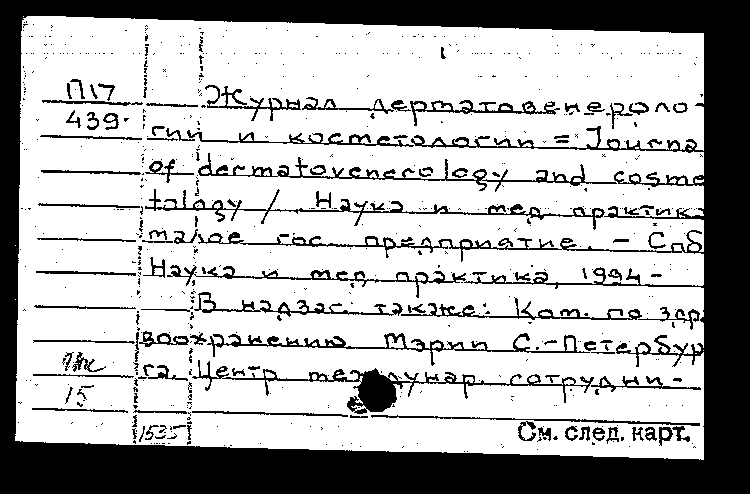 1
П17
439.
Журнал дерматовенероло-
гии и косметологии = Journa
of dermatovenerology and cosme
tology / Наука и мед. практика
малое гос. предприятие. – СпБ
Наука и мед. практика, 1994 –
В надзаг. также: Ком. по здра
воохранению Мэрии С.-Петербур
га. Центр междунар. сотрудни-
15
1535
См. след. карт.